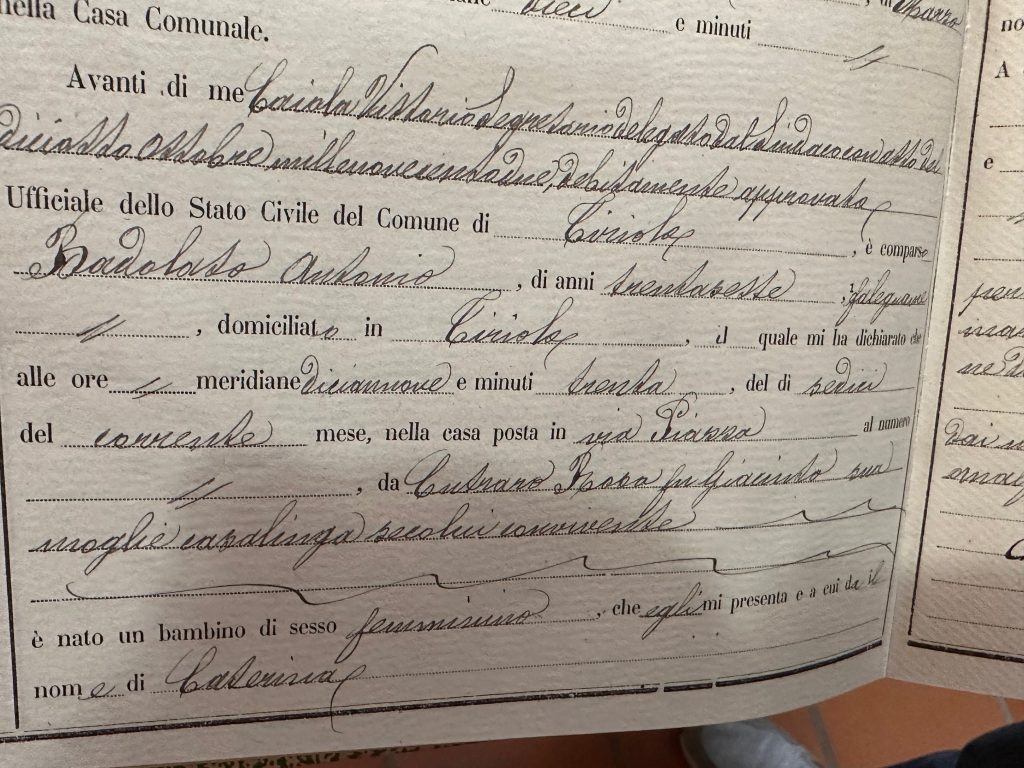 nella Casa Comunale.
dieci e minuti //
Avanti di me Caiola Vittorio Segretario delegato dal Sindaco con atto del
diciotto ottobre millenovecentodue, debitamente approvato
Ufficiale dello Stato Civile del Comune di Tiriolo, è comparso
Badolato Antonio, di anni trentasette, falegname
//, domiciliato in Tiriolo, il quale mi ha dichiarato che
alle ore // meridiane diciannove e minuti trenta, del dì sedici
del corrente mese, nella casa posta in via Piazza al numero
//, da Cutraro Rosa fu Giacinto sua
moglie casalinga seco lui convivente
è nato un bambino di sesso femminino, che egli mi presenta e a cui dà il
nome di Caterina